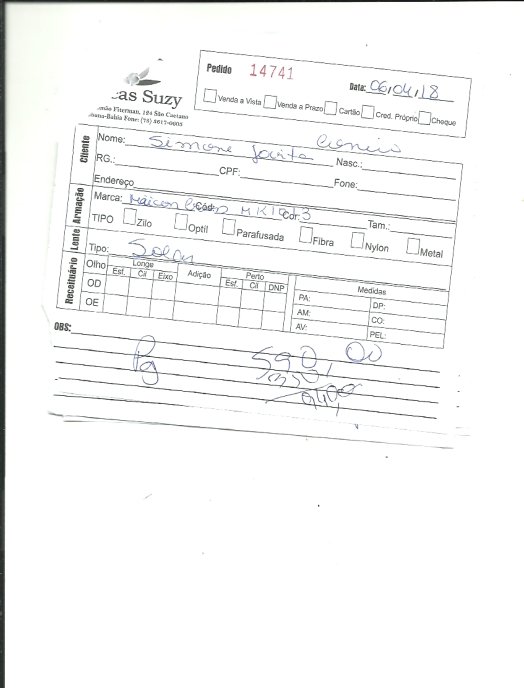 Pedido 14741
Data: 06,04,18
Venda a Vista Venda a Prazo Cartão Cred. Próprio Cheque
cas Suzy
Fiterman, 124 São Caetano
Bahia Fone: (75) 3617-0005
Cliente
Nome: Simone
Nasc.:
RG.: CPF: Fone:
Endereço
Armação
Marca: Cód.: MK1013 Cor: Tam.:
TIPO Zilo Optil Parafusada Fibra Nylon Metal
Lente
Tipo: Solar
Receituário
Olho Longe Adição Perto Medidas
Esf. Cil Eixo Esf. Cil DNP
OD PA: DP:
OE AM: CO:
AV: PEL:
OBS:
Pg 590,00